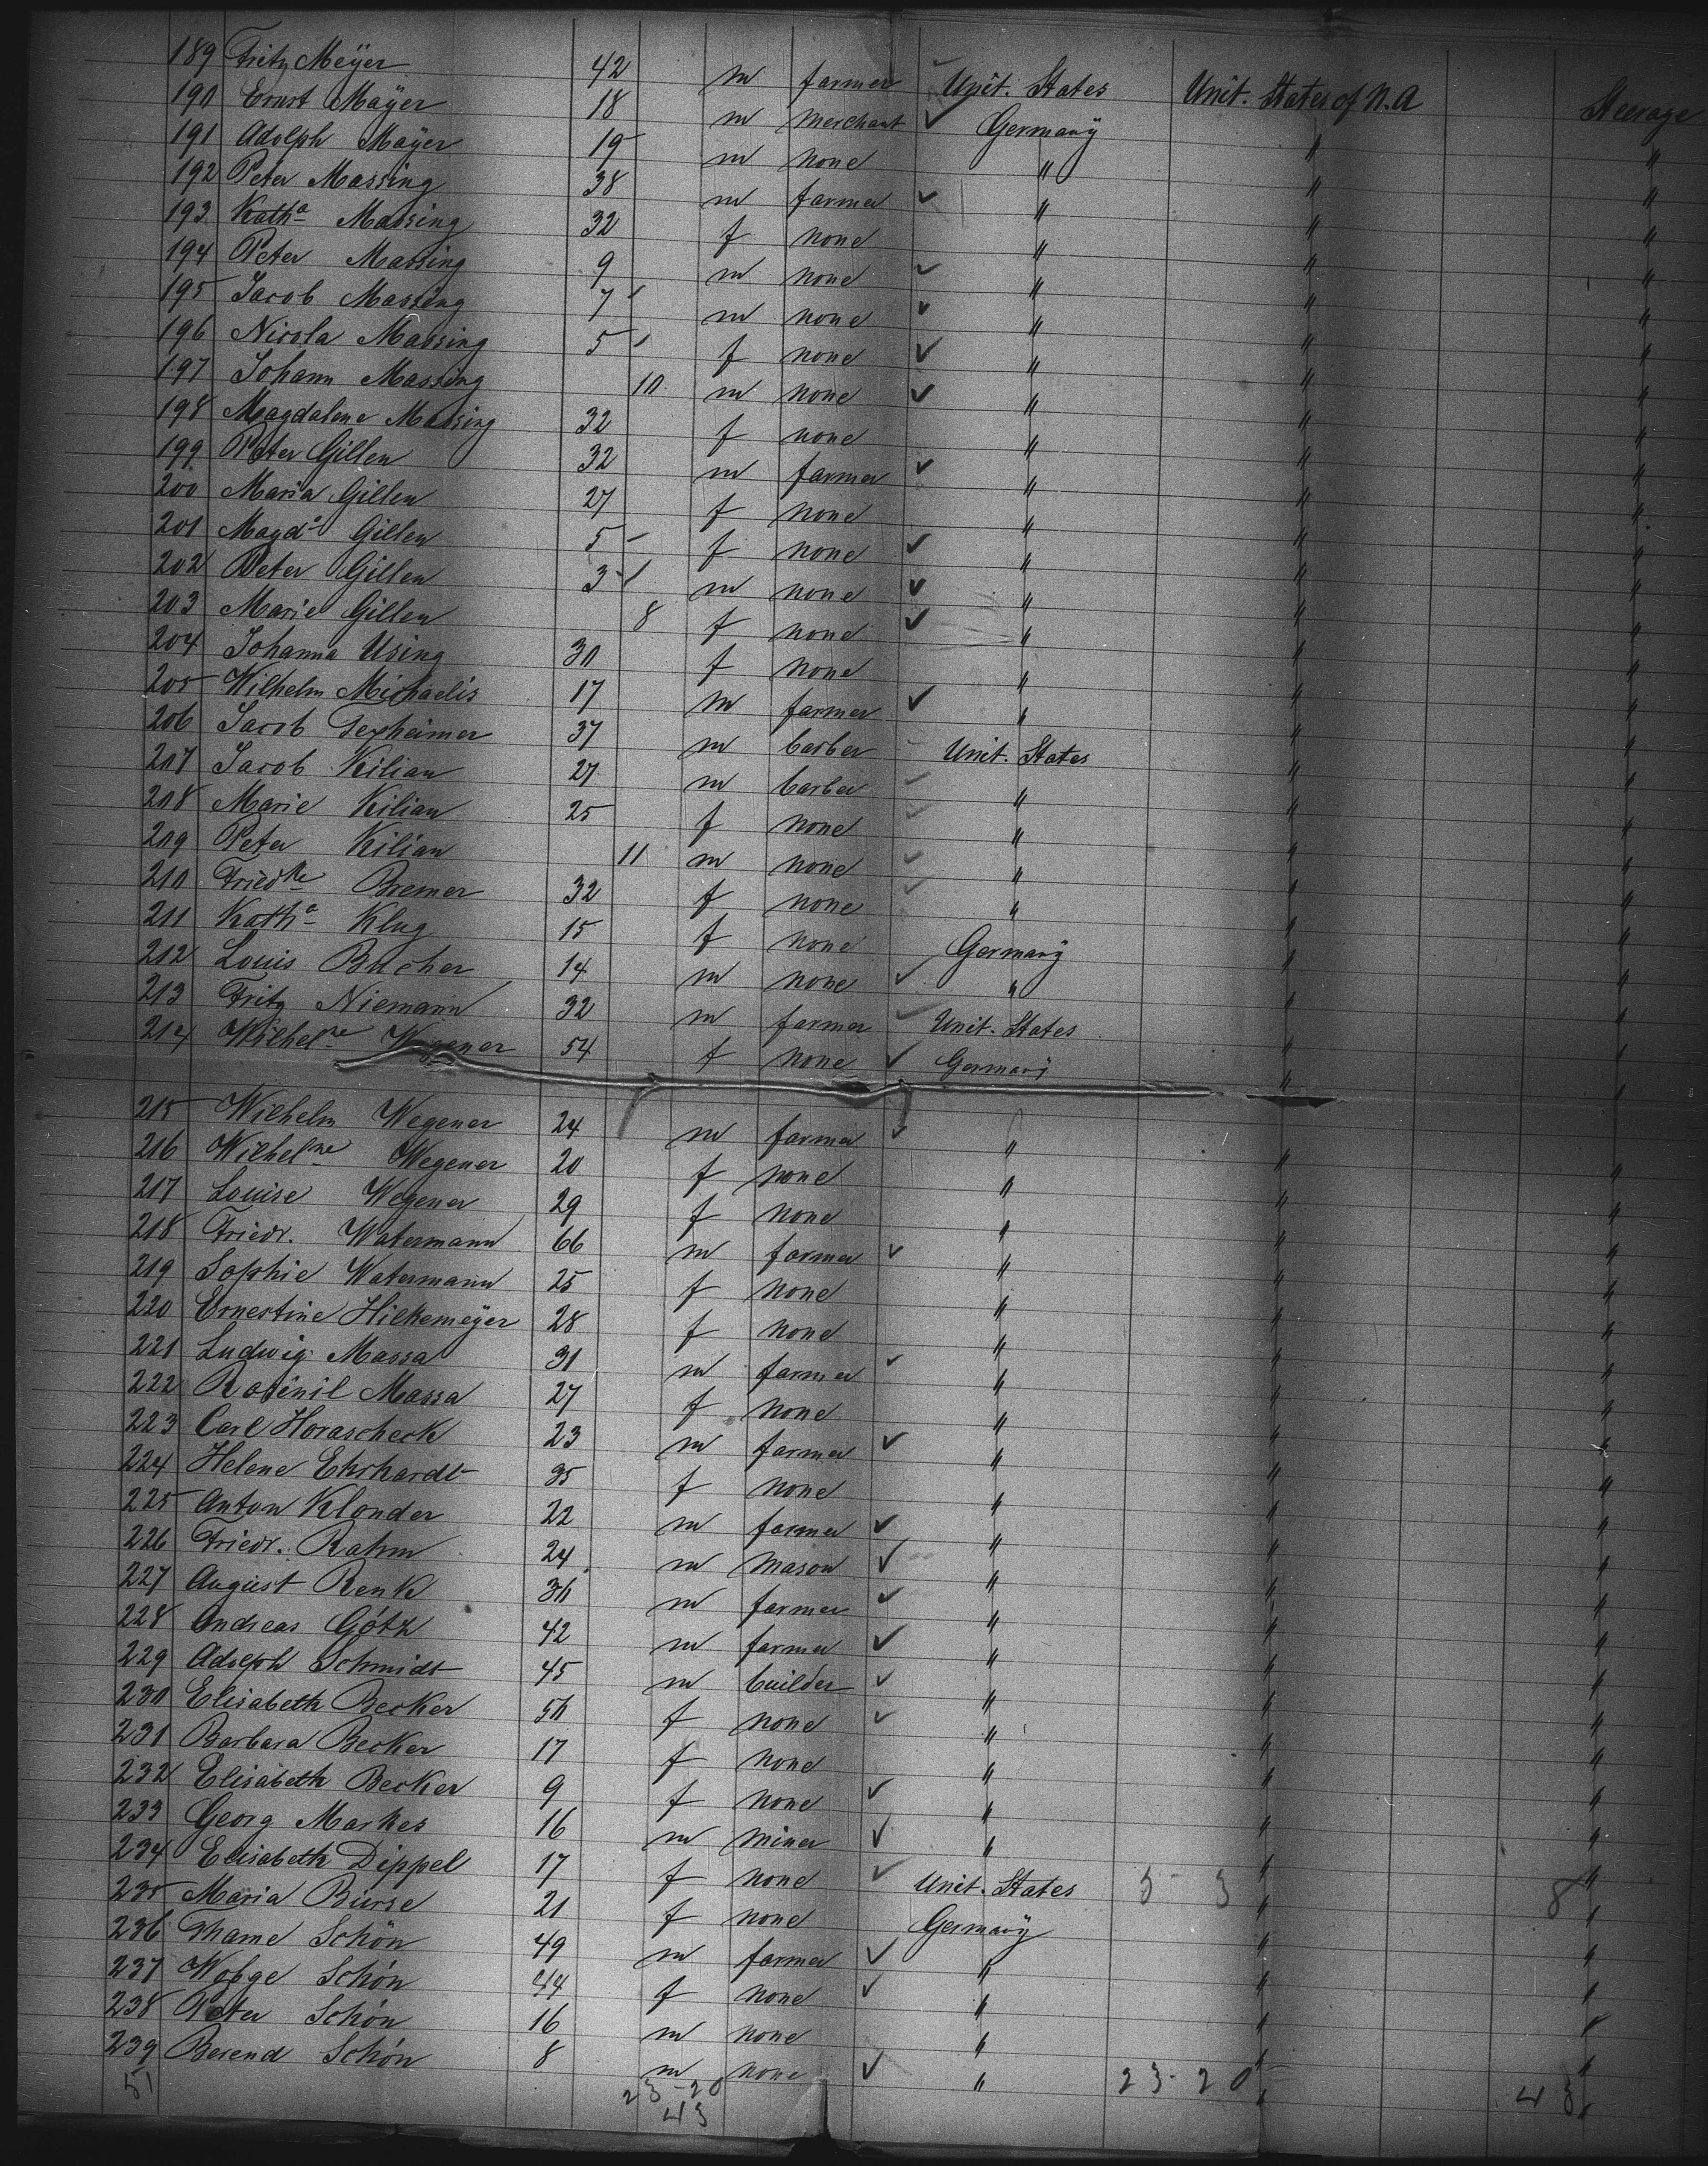 189 Fritz Meÿer 42 m farmer Unit. States Unit. States of N.A Steerage
190 Ernst Maÿer 18 m merchant ✓ Germanÿ " "
191 Adolph Maÿer 19 m none " " "
192 Peter Massing 38 m farmer ✓ " " "
193 Kathª Massing 32 f none " " "
194 Peter Massing 9 m none ✓ " " "
195 Jacob Massing 7 m none ✓ " " "
196 Nicola Massing 5 f none ✓ " " "
197 Johann Massing 10 m none ✓ " " "
198 Magdalene Massing 32 f none " " "
199 Peter Gillen 32 m farmer ✓ " " "
200 Maria Gillen 27 f none " " "
201 Magdª Gillen 5 f none ✓ " " "
202 Peter Gillen 3 m none ✓ " " "
203 Marie Gillen 8 f none ✓ " " "
204 Johanna Using 30 f none " " "
205 Wilhelm Michaelis 17 m farmer ✓ " " "
206 Jacob Gexheimer 37 m barber Unit. States " "
207 Jacob Kilian 27 m barber ✓ " " "
208 Marie Kilian 25 f none ✓ " " "
209 Peter Kilian 11 m none ✓ " " "
210 Friedke Bremer 32 f none ✓ " " "
211 Kathª Klug 15 f none Germanÿ " "
212 Louis Bucher 14 m none ✓ " " "
213 Fritz Niemann 32 m farmer ✓ Unit. States " "
214 Wilhelne Wegener 54 f none ✓ Germanÿ " "
215 Wilhelm Wegener 24 m farmer ✓ " " "
216 Wilhelne Wegener 20 f none " " "
217 Louise Wegener 29 f none " " "
218 Friedr. Watermann 66 m farmer ✓ " " "
219 Sophie Watermann 25 f none " " "
220 Ernestine Hilkemeÿer 28 f none " " "
221 Ludwig Massa 31 m farmer ✓ " " "
222 Rosinil Massa 27 f none " " "
223 Carl Horascheck 23 m farmer ✓ " " "
224 Helene Ehrhardt 35 f none " " "
225 Anton Klonder 22 m farmer ✓ " " "
226 Friedr. Rahm 24 m mason ✓ " " "
227 August Renk 30 m farmer ✓ " " "
228 Andreas Götz 42 m farmer ✓ " " "
229 Adolph Schmidt 45 m builder ✓ " " "
230 Elisabeth Becker 50 f none ✓ " " "
231 Barbara Becker 17 f none " " "
232 Elisabeth Becker 9 f none ✓ " " "
233 Georg Markes 16 m miner ✓ " " "
234 Elisabeth Dippel 17 f none ✓ Unit. States 5 3 " 8 "
235 Maria Bürse 21 f none Germanÿ " "
236 Thame Schön 49 m farmer ✓ " " "
237 Wobge Schön 44 f none ✓ " " "
238 Peter Schön 16 m none " " "
239 Berend Schön 8 m none ✓ " 23-20 " 43 "
51 23-20
43